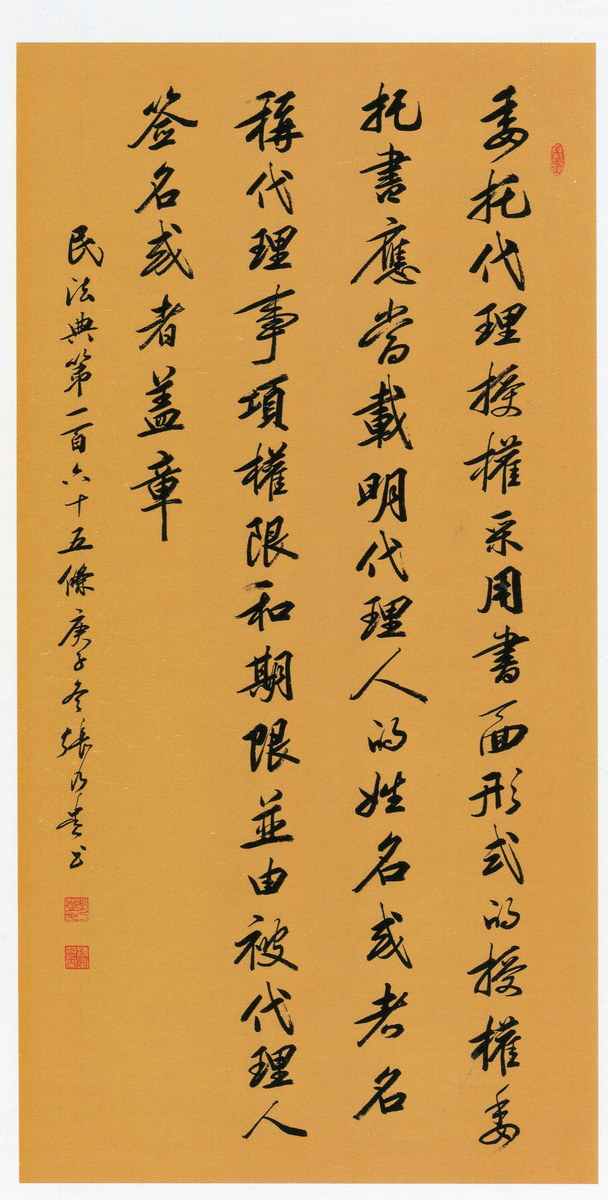 委托代理授權采用書面形式的授權委
托書應當載明代理人的姓名或者名
稱代理事項權限和期限並由被代理人
签名或者盖章
民法典第一百六十五條庚子冬張乃貴书